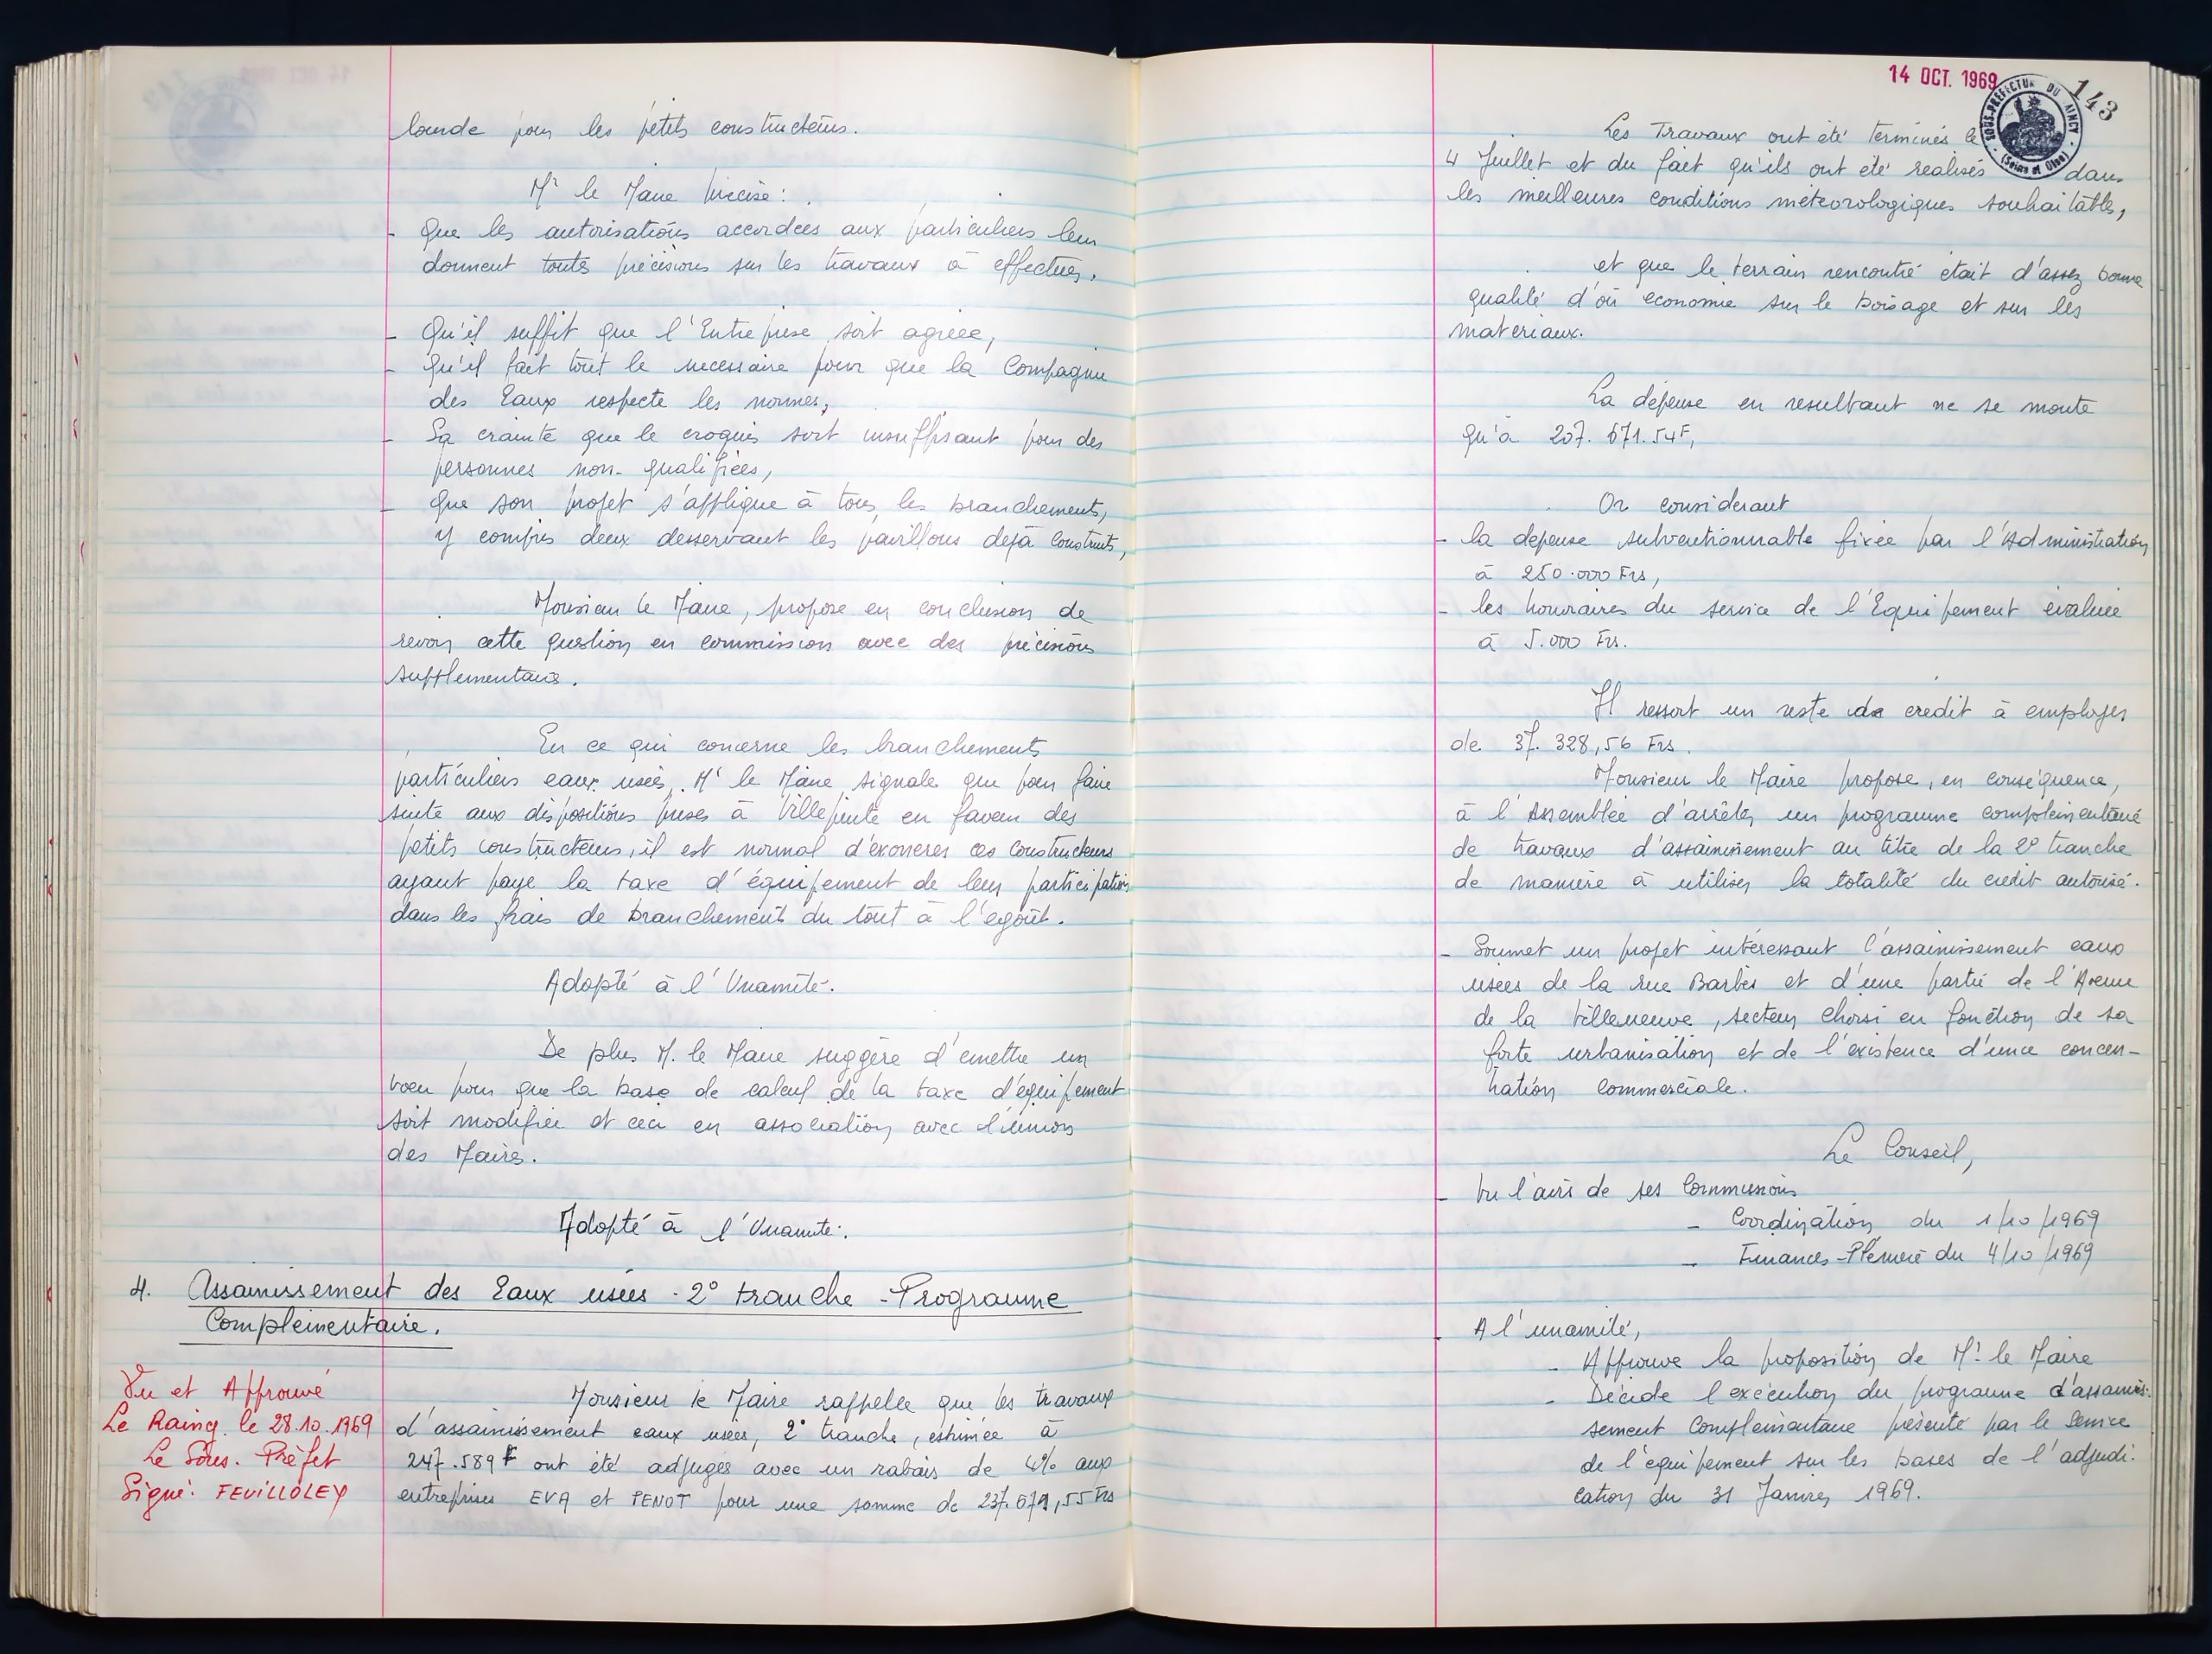 lourde pour les petits constructeurs.
Mr le Maire précise :
- que les autorisations accordées aux particuliers leur
donnent toutes précisions sur les travaux à effectuer,
- Qu'il suffit que l'Entreprise soit agréée,
- qu'il fait tout le necessaire pour que la Compagnie
des Eaux respecte les normes,
- Sa crainte que le croquis soit insuffisant pour des
personnes non-qualifiées,
- que son projet s'applique à tous les branchements,
y compris deux desservant les pavillons déjà construits,
Monsieur le Maire, propose en conclusion de
revoir cette question en commission avec des précisions
supplementaires.
En ce qui concerne les branchements
particuliers eaux usées, Mr le Maire signale que pour faire
suite aux dispositions prises à Villepinte en faveur des
petits constructeurs, il est normal d'exonerer ces constructeurs
ayant payé la taxe d'équipement de leur participation
dans les frais de branchement du tout à l'egoût.
Adopté à l'Unamité.
De plus M. le Maire suggère d'emettre un
voeu pour que la base de calcul de la taxe d'équipement
soit modifiée et ceci en association avec l'union
des Maires.
Adopté à l'Unamité.
4. Assainissement des Eaux usées - 2° tranche - Programme
Complementaire.
Vu et Approuvé
Le Raincy le 28.10.1969
Le Sous-Préfet
Signé: FEUILLOLEY
Monsieur le Maire rappelle que les travaux
d'assainissement eaux usées, 2° tranche, estimée à
247.589 F ont été adjugés avec un rabais de 4% aux
entreprises EVA et PENOT pour une somme de 237.679,55 Frs
14 OCT. 1969
143
SOUS-PRÉFECTURE DU RAINCY
(Seine et Oise)
Les Travaux ont été terminés le
4 Juillet et du fait qu'ils ont été réalisés dans
les meilleures conditions météorologiques souhaitables,
et que le terrain rencontré était d'assez bonne
qualité d'où économie sur le boisage et sur les
materiaux.
La dépense en resultant ne se monte
qu'à 207.671.54F,
Or considerant
- la depense subventionnable fixée par l'Administration
à 250.000 Frs,
- les honoraires du service de l'Equipement évaluée
à 5.000 Frs.
Il ressort un reste de credit à employer
de 37.328,56 Frs.
Monsieur le Maire propose, en conséquence,
à l'Assemblée d'arrêter un programme complémentaire
de travaux d'assainissement au titre de la 2° tranche
de manière à utiliser la totalité du crédit autorisé.
- Soumet un projet intéressant l'assainissement eaux
usées de la rue Barbès et d'une partie de l'Avenue
de la Villeneuve, secteur choisi en fonction de sa
forte urbanisation et de l'existence d'une concen-
tration commerciale.
Le Conseil,
- Vu l'avis de ses Commissions
- Coordination du 1/10/1969
- Finances-Plénière du 4/10/1969
- A l'unamité,
- Approuve la proposition de Mr le Maire
- Décide l'exécution du programme d'assainis-
sement Complémentaire présenté par le Service
de l'équipement sur les bases de l'adjudi-
cation du 31 Janvier 1969.